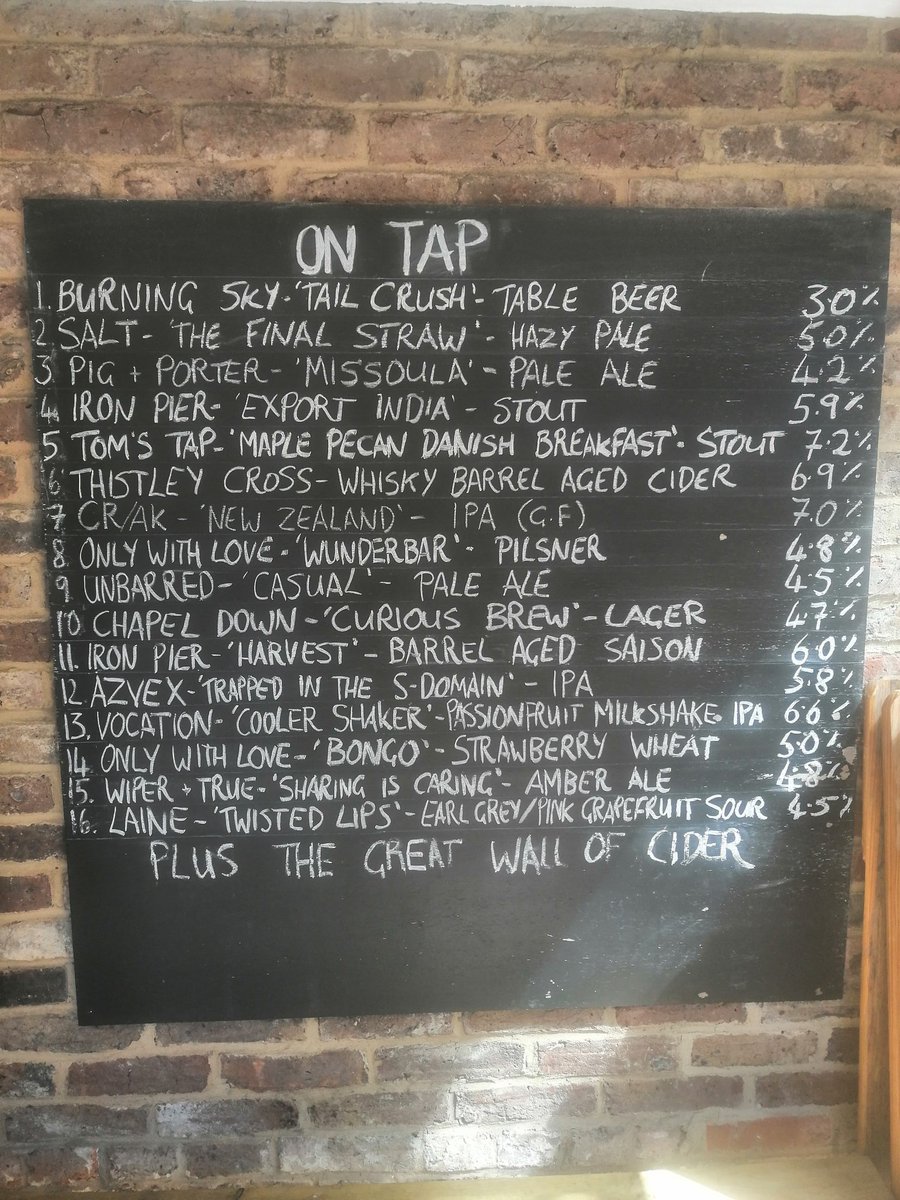 ON TAP
1. BURNING SKY-'TAIL CRUSH'- TABLE BEER 3.0%
2 SALT- 'THE FINAL STRAW'- HAZY PALE 5.0%
3 PIG + PORTER- 'MISSOULA'- PALE ALE 4.2%
4 IRON PIER- 'EXPORT INDIA' - STOUT 5.9%
5 TOM'S TAP-'MAPLE PECAN DANISH BREAKFAST'- STOUT 7.2%
6 THISTLEY CROSS- WHISKY BARREL AGED CIDER 6.9%
7 CR/AK - 'NEW ZEALAND'- IPA (G.F) 7.0%
8 ONLY WITH LOVE-'WUNDERBAR'- PILSNER 4.8%
9 UNBARRED- 'CASUAL'- PALE ALE 4.5%
10 CHAPEL DOWN-'CURIOUS BREW'- LAGER 4.7%
11. IRON PIER-'HARVEST'- BARREL AGED SAISON 6.0%
12. AZVEX-'TRAPPED IN THE S-DOMAIN' - IPA 5.8%
13. VOCATION-'COOLER SHAKER'-PASSIONFRUIT MILKSHAKE IPA 6.6%
14 ONLY WITH LOVE-'BONGO'- STRAWBERRY WHEAT 5.0%
15. WIPER + TRUE-'SHARING IS CARING'- AMBER ALE 4.8%
16. LAINE-'TWISTED LIPS'- EARL GREY/PINK GRAPEFRUIT SOUR 4.5%
PLUS THE GREAT WALL OF CIDER